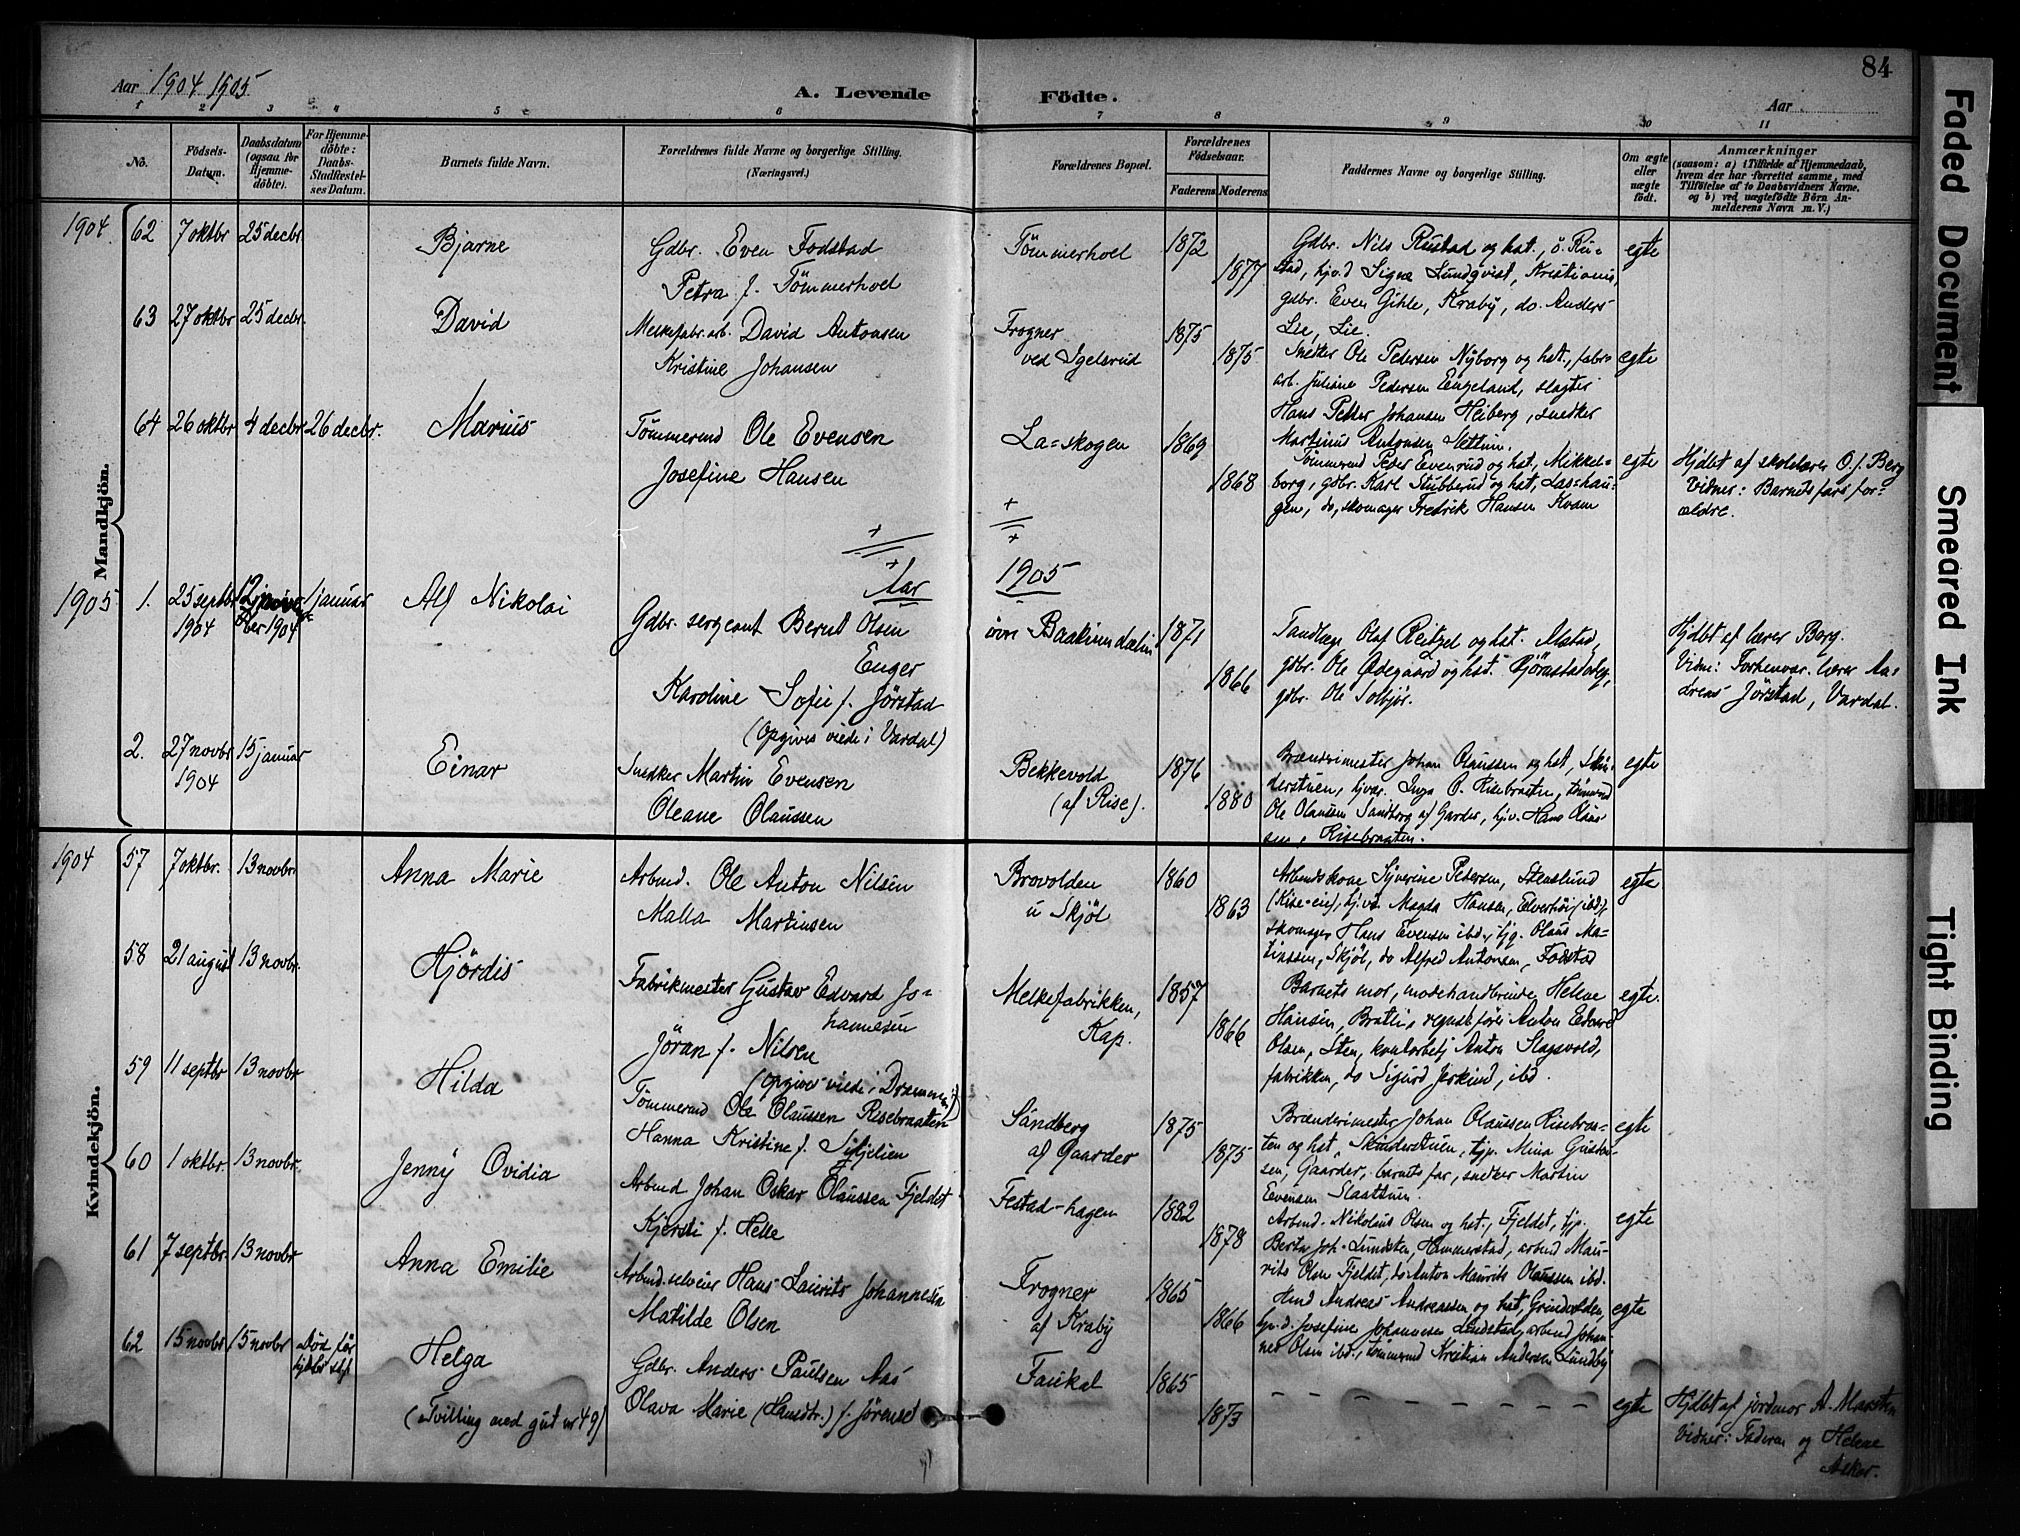 84
Aar 1904 1905
A. Levende Födte.
Aar
1 2 3 4 5 6 7 8 9 10 11
No.
Födsels-Datum.
Daabsdatum (ogsaa for Hjemmedöbte).
For Hjemmedöbte: Daabs-Stadfæstelses Datum.
Barnets fulde Navn.
Forældrenes fulde Navne og borgerlige Stilling.
(Næringsvei.)
Forældrenes Bopæl.
Forældrenes Födselsaar.
Faderens Moderens
Faddernes Navne og borgerlige Stilling.
Om ægte eller uægte födt.
Anmærkninger
(saasom: a) i Tilfælde af Hjemmedaab,
hvem der har forrettet samme, med
Tilföielse af to Daabsvidners Navne.
og b) ved uægtefödte Börn An-
melderens Navn m. V.)
Mandkjön.
1904 62 7 oktbr 25 decbr. Bjarne
Gdbr. Even Fodstad
Petra f. Tömmerhoel
Tömmerhoel 1872 1877
Gdbr. Nils Rustad og hst., ö. Ru-
stad, hjv.d Signe Lundqvist, Kristiania,
gdbr. Even Gihle, Kraby, do. Anders
Lie, Lie.
egte
63 27 oktbr 25 decbr. David
Melkefabr.arb. David Antonsen
Kristine Johansen
Frogner
ved Igelsrud
1875 1875
Snedker Ole Pedersen Nyborg og hst., fabr-
arb. Juliane Pedersen Engeland, slagter
Hans Petter Johansen Heiberg, snedker
Martinus Antonsen Sletten.
egte
64 26 oktbr 4 decbr 26 decbr. Marius
Tömmermd Ole Evensen
Josefine Hansen
La-skogen 1869 1868
Tömmermd Peder Evenrud og hst., Mikkel-
borg, gdbr. Karl Stubberud og hst, Las-hau-
gen, do, skomager Fredrik Hansen Kvam
egte
Hjdbt af skolelærer O. J. Berg
Vidner: Barnets fars for-
ældre.
Aar 1905
1905 1. 25 septbr 1904 1 januar
Alf Nikolai
Gdbr. sergeant Bernt Olsen
Enger
Karoline Sofie f. Jörstad
(Opgives viede i Vardal)
övre Baakinndalen 1871 1866
Tandlæge Olaf Reitzel og hst.
gdbr. Ole Ødegaard og hst.
gdbr. Ole Solbjör.
Hjdbt af lærer Berg.
Vidne: Forhenvær. lærer An-
dreas Jörstad, Vardal.
2. 27 novbr 1904 15 januar Einar
Snedker Martin Evensen
Oleane Olaussen
Bekkevold
(af Rise).
1876 1880
Brænderimester Johan Olaussen og hst, Skin-
derstuen, hjvær. Inga O. Risebraaten, tömmrmd
Ole Olaussen Sandberg af Garder, hjv. Hans Olaus-
sen, Risebraaten.
egte
Kvindekjön.
1904 57 7 oktbr. 13 novbr. Anna Marie
Arbmd. Ole Anton Nilsen
Malla Martinsen
Brovolden
u Skjöl
1860 1863
Arbmdskone Syverine Pedersen, Stenslund
(Kise-eie), hjv. Magda Hansen, Elverhöi (ibd),
skomager Hans Evensen ibd., tjg. Olaus Ma-
tinssen, Skjöl, do Alfred Antonsen, Fodstad
egte
58 21 august 13 novbr. Hjördis
Fabrikmester Gustav Edvard Jo-
hannesen
Jöran f. Nilsen
(Opgives viede i Drammen)
Melkefabrikken,
Kap.
1857 1866
Barnets mor, modehandlerinde Helene
Hansen, Bratli, regnskförer Anton Edvard
Olsen, Sten, kontorbetj Anton Slagsvold,
fabrikken, do Sigurd Jerkind, ibd.
egte.
59 11 septbr 13 novbr Hilda
Tömmermd Ole Olaussen Risebraaten
Hanna Kristine f. Sihjelien
Sandberg
af Gaarder
1875 1875
Brænderimester Johan Olaussen Risebraa-
ten og hst, Skinderstuen, tjp. Mina Gustav-
sen, Gaarder, barnets far, snedker Martin
Evensen Slaattum.
egte
60 1 oktbr. 13 novbr. Jenny Ovidia
Arbmd Johan Oskar Olaussen Fjeldet
Kjersti f. Helle
Festad-hagen 1882 1878
Arbmd. Nikolaus Olsen og hst., Fjeldet, tjp.
Berta Joh. Lundsten, Hammerstad, arbmd Mau-
rits Olsen Fjeldet, do Anton Maurits Olaussen ibd.
egte
61 7 septbr. 13 novbr Anna Emilie
Arbmd. selveier Hans Laurits Johannesen
Matilde Olsen
Frogner
af Kraby
1865 1866
Hmd Andreas Andreassen og hst, Grindvolden,
hjv.d. Josefine Johannesen Lundstad, arbmd Johan-
nes Olsen ibd., tömmermd Kristian Andersen Lundby
egte
62 15 novbr 15 novbr Död för
Helga
(Tvilling med gut nr 49)
Gdbr. Anders Paulsen Aas
Olava Marie (Hansdtr.) f. Jörenset
Faukal 1865 1873
egte
Hjdbt af jordmor A. Marsten
Vidner: Faderen og Helene
Asker.
Faded Document
Smeared Ink
Tight Binding